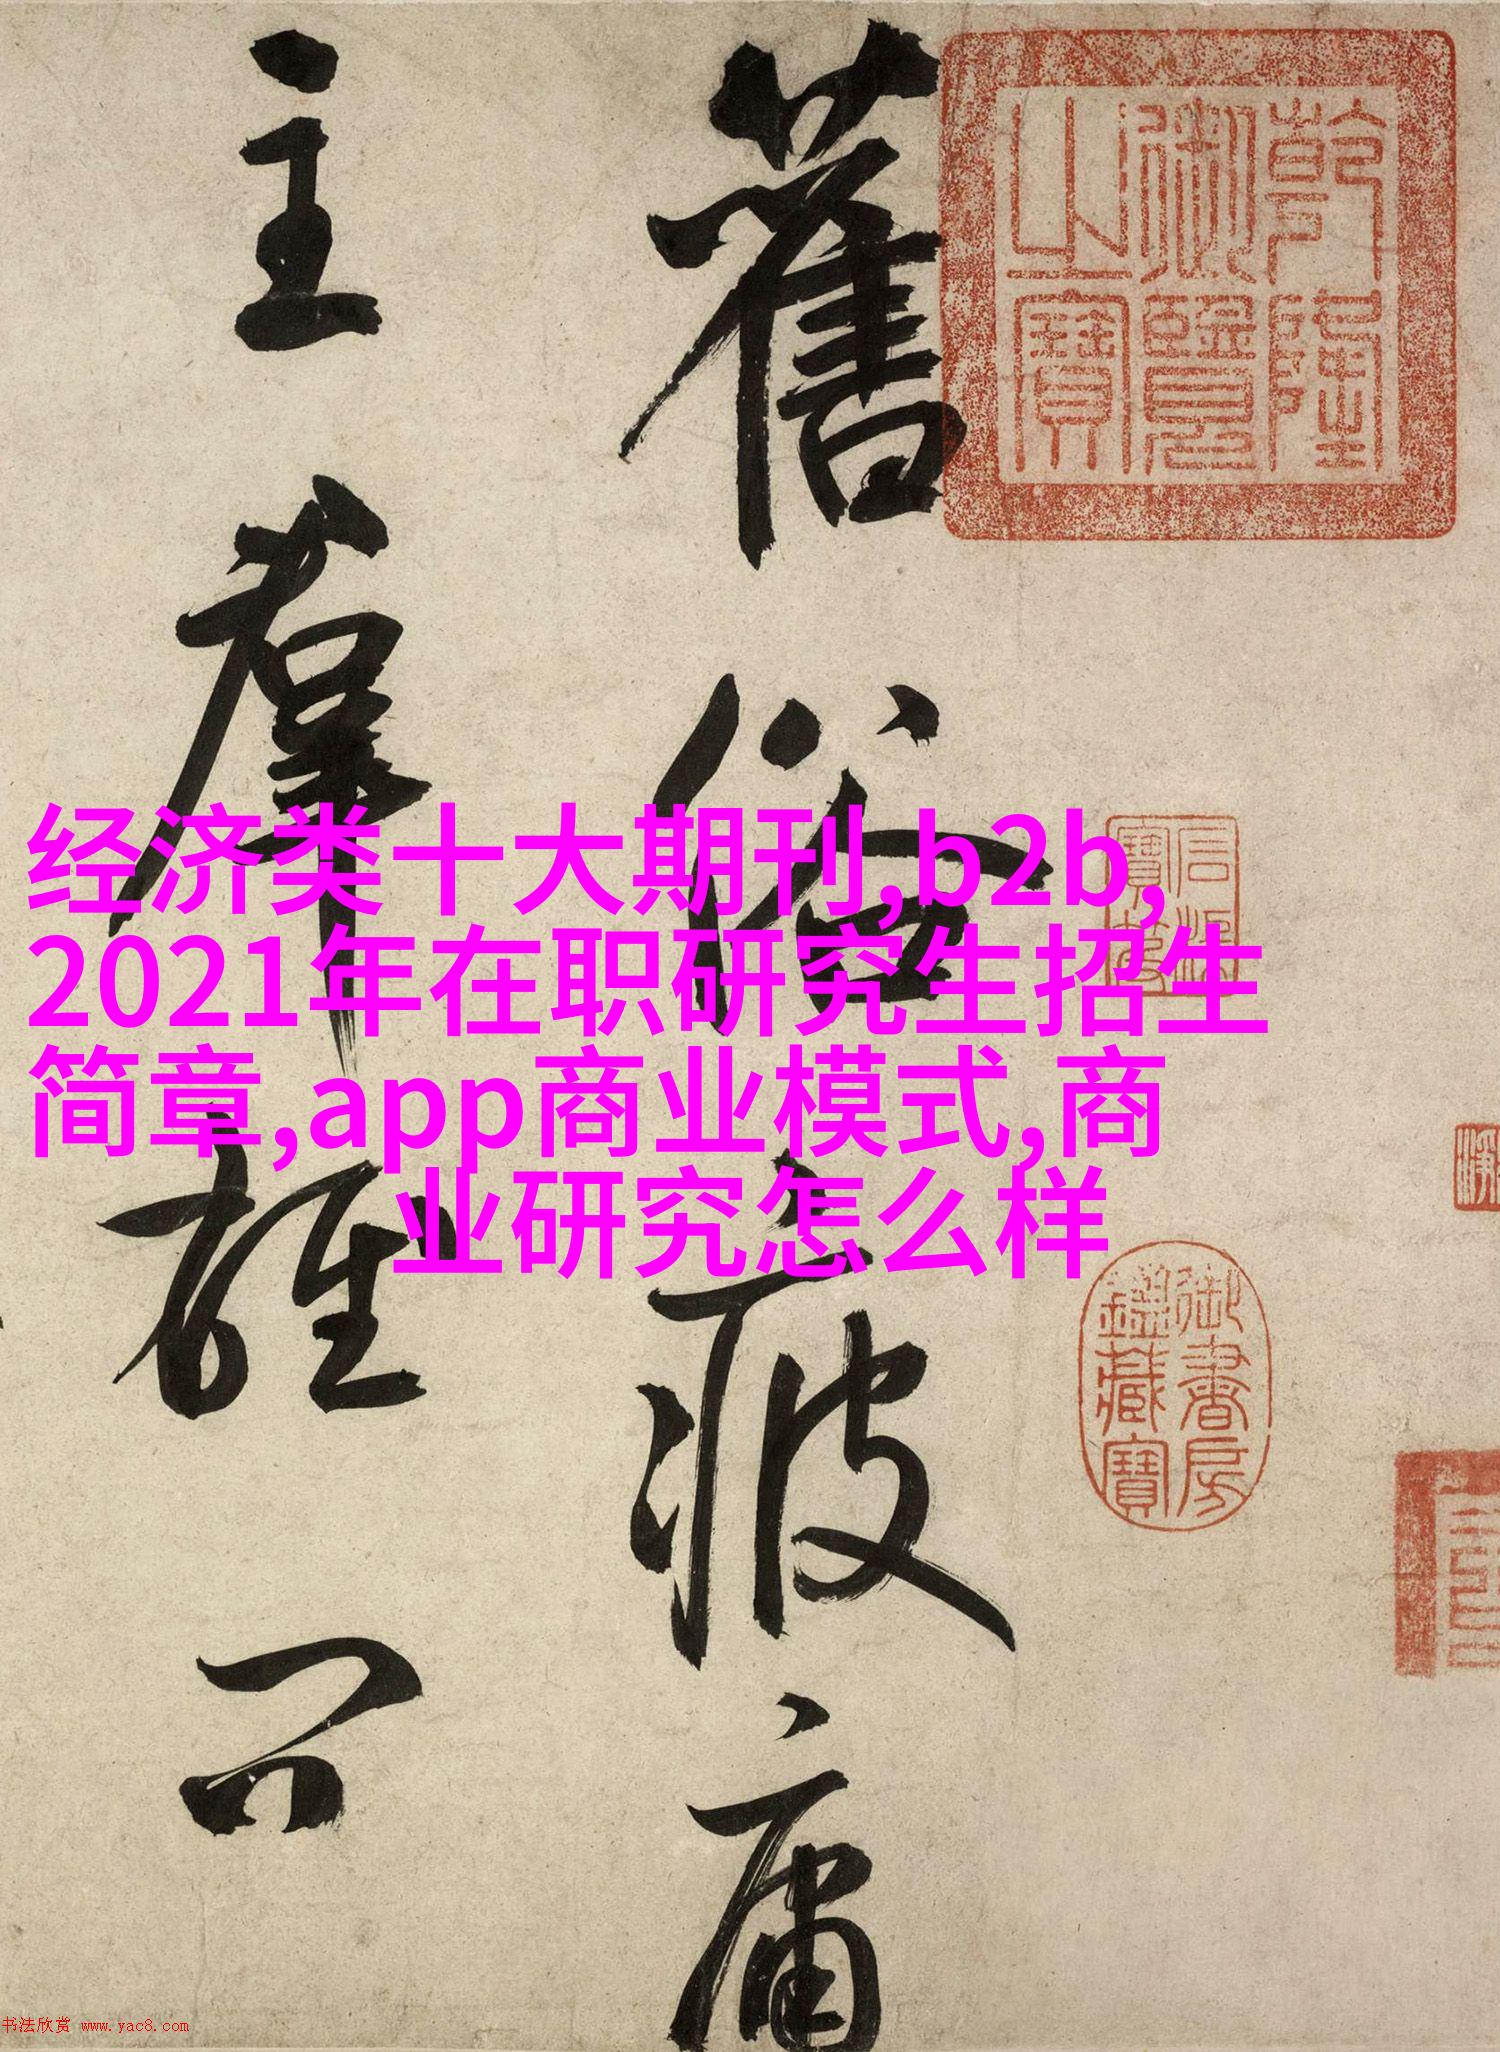 舊俗疲庸
主羣雄只
乾隆
御覽
之寶
經济类十大期刊,b2b,
2021年在职研究生招生
简章,app商业模式,商
业研究怎么样
御書房
鑑藏寶
书法欣赏 www.yac8.com